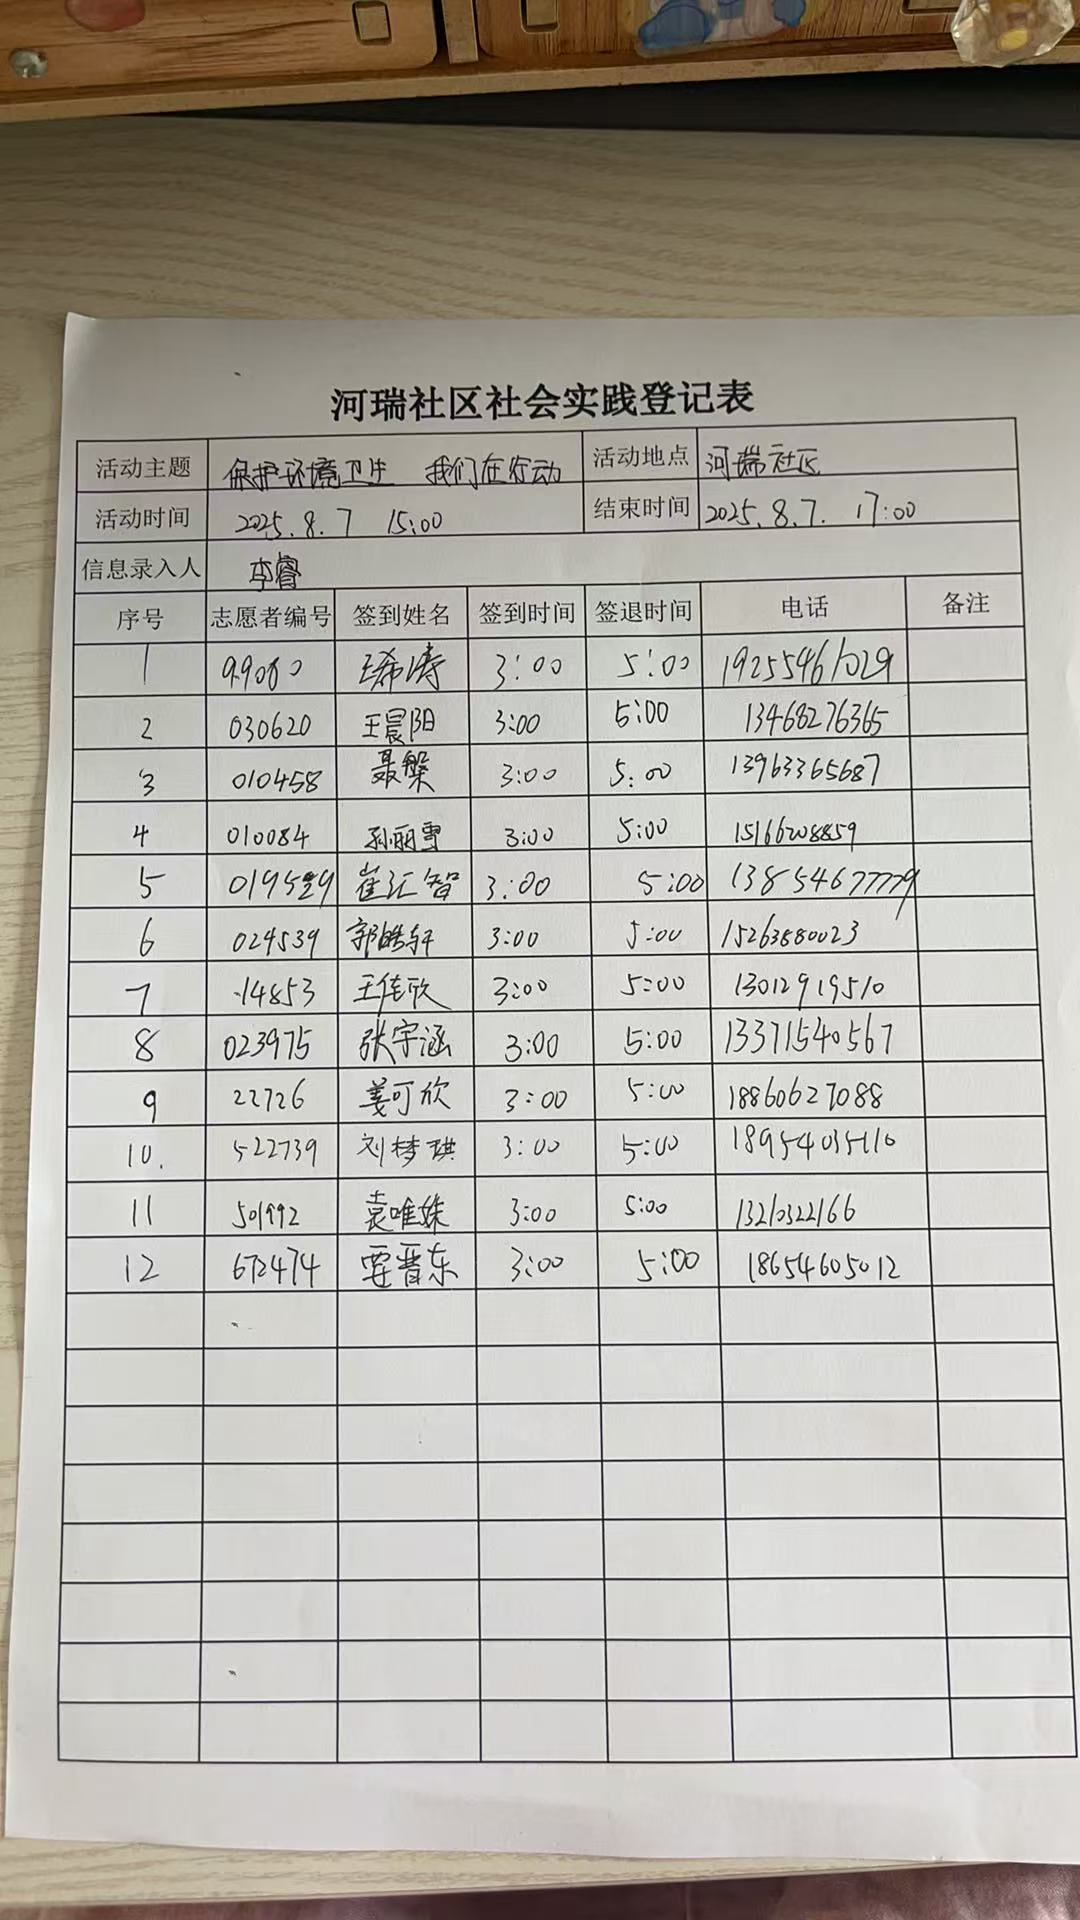 河瑞社区社会实践登记表
活动主题 保护环境卫生 我们在行动 活动地点 河瑞社区
活动时间 2025.8.7 15:00 结束时间 2025.8.7. 17:00
信息录入人 李睿
序号 志愿者编号 签到姓名 签到时间 签退时间 电话 备注
1 王希涛 3:00 5:00 19255461029
2 030620 王晨阳 3:00 5:00 13468276365
3 010458 聂槃 3:00 5:00 13963365687
4 010084 孙丽雪 3:00 5:00 15166208859
5 019529 崔汇智 3:00 5:00 13854677779
6 024539 郭皓轩 3:00 5:00 15263880023
7 14853 王佳欣 3:00 5:00 13012919510
8 023975 张宇涵 3:00 5:00 13371540567
9 22726 姜可欣 3:00 5:00 18860627088
10. 522739 刘梦琪 3:00 5:00 18954035110
11 501992 袁唯姝 3:00 5:00 13210322166
12 672474 晋东 3:00 5:00 18654605012